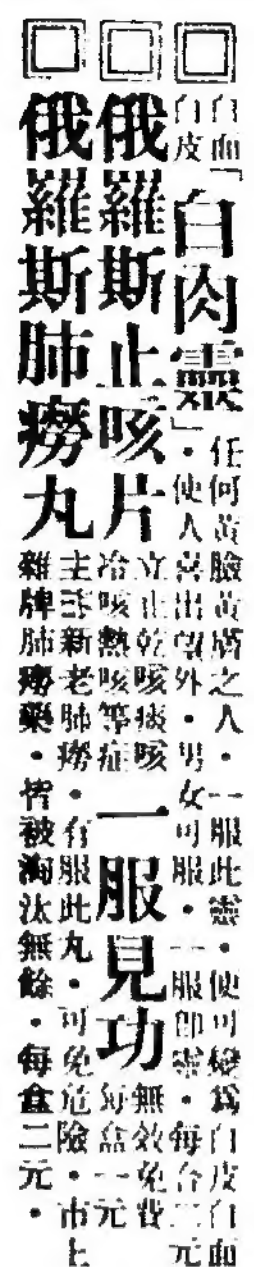 白面
白皮
「白肉靈」
任何黃臉黃膚之人・一服此靈・便可變爲白皮白面
・使人喜出望外・男女可服・一服即靈・每合二元
俄羅斯止咳片
立止乾咳痰咳
冷咳熱咳等症
一服見功
無效免費
每盒一元
俄羅斯肺癆丸
主治新老肺癆・有服此丸・可免危險・市上
雜牌肺癆藥・皆被淘汰無餘・每盒二元・